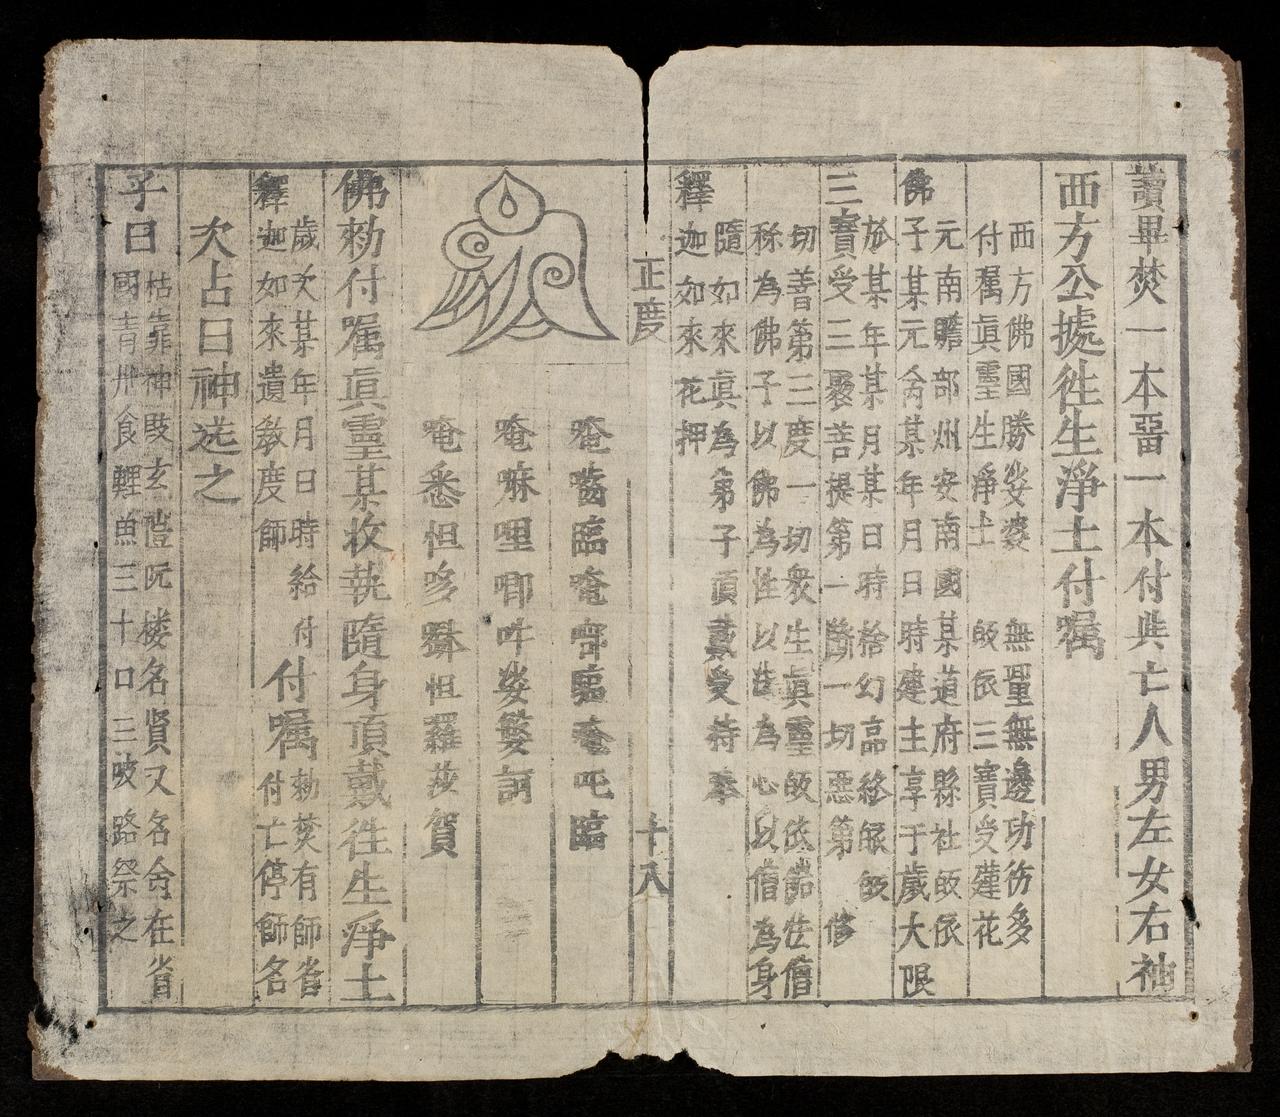 讀畢焚一本畱一本付與亡人男左女右神
西方公據徃生淨土付嘱
西方佛國勝娑婆 無量無邊功㣔多
付嘱眞靈生淨土 皈依三寶受蓮花
元南贍部州安南國某道府縣社皈依
佛子某元命某年月日時建主享于歲大限
於某年某月某日時捨幻品終皈
三寶受三聚菩提第一斷一切惡第 修
切善第三度一切衆生眞靈皈依諸法僧
称為佛子以佛為性以法為心以僧為身
隨如來眞為第子頂戴受持奉
釋迦如來花押
正度 十八
唵 臨唵 臨唵吒臨
唵嘛哩唧吽娑婆訶
唵悉怛哆 怛羅莎賀
佛勑付嘱眞靈某收執隨身頂戴徃生淨土
歲次某年月日時給付
釋迦如來遺敎度師
付嘱
勑焚有師省
付亡停師名
次占曰神选之
子曰
枯靠神 玄 阮楼名贤又名舍在省
國青卅食鯉魚三十口三岐路祭之